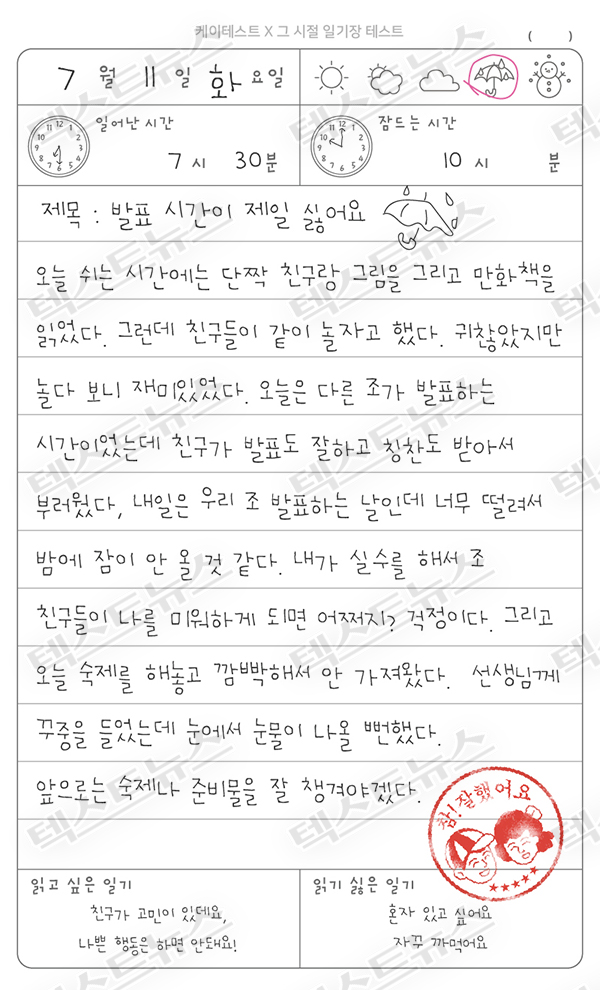 케이테스트 X 그 시절 일기장 테스트
( )
7 월 11 일 화 요일
일어난 시간
7 시 30 분
잠드는 시간
10 시 분
제목 : 발표 시간이 제일 싫어요
오늘 쉬는 시간에는 단짝 친구랑 그림을 그리고 만화책을
읽었다. 그런데 친구들이 같이 놀자고 했다. 귀찮았지만
놀다 보니 재미있었다. 오늘은 다른 조가 발표하는
시간이었는데 친구가 발표도 잘하고 칭찬도 받아서
부러웠다, 내일은 우리 조 발표하는 날인데 너무 떨려서
밤에 잠이 안 올 것 같다. 내가 실수를 해서 조
친구들이 나를 미워하게 되면 어쩌지? 걱정이다. 그리고
오늘 숙제를 해놓고 깜빡해서 안 가져왔다. 선생님께
꾸중을 들었는데 눈에서 눈물이 나올 뻔했다.
앞으로는 숙제나 준비물을 잘 챙겨야겠다.
참! 잘했어요
읽고 싶은 일기
친구가 고민이 있데요,
나쁜 행동은 하면 안돼요!
읽기 싫은 일기
혼자 있고 싶어요
자꾸 까먹어요
텍스트뉴스